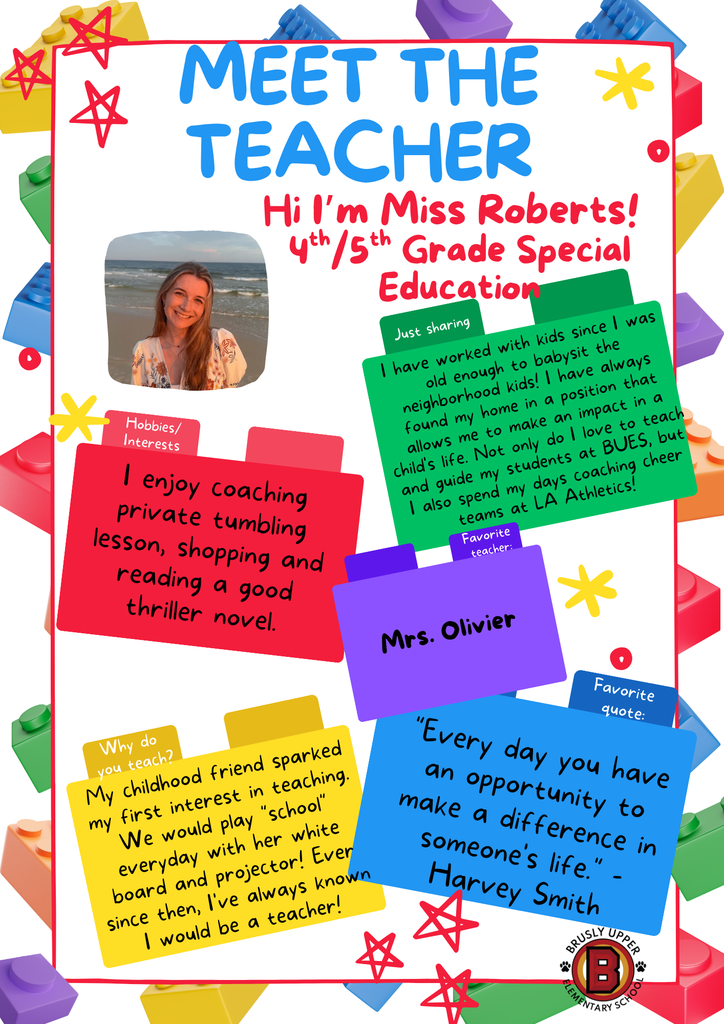 MEET THE
TEACHER
Hi I'm Miss Roberts!
4th/5th Grade Special
Education
Just sharing
I have worked with kids since I was
old enough to babysit the
neighborhood kids! I have always
found my home in a position that
allows me to make an impact in a
child's life. Not only do I love to teach
and guide my students at BUES, but
I also spend my days coaching cheer
teams at LA Athletics!
Hobbies/
Interests
I enjoy coaching
private tumbling
lesson, shopping and
reading a good
thriller novel.
Favorite
teacher:
Mrs. Olivier
Why do
you teach?
My childhood friend sparked
my first interest in teaching.
We would play "school"
everyday with her white
board and projector! Ever
since then, I've always known
I would be a teacher!
Favorite
quote:
"Every day you have
an opportunity to
make a difference in
someone's life." -
Harvey Smith
BRUSLY UPPER
B
ELEMENTARY SCHOOL